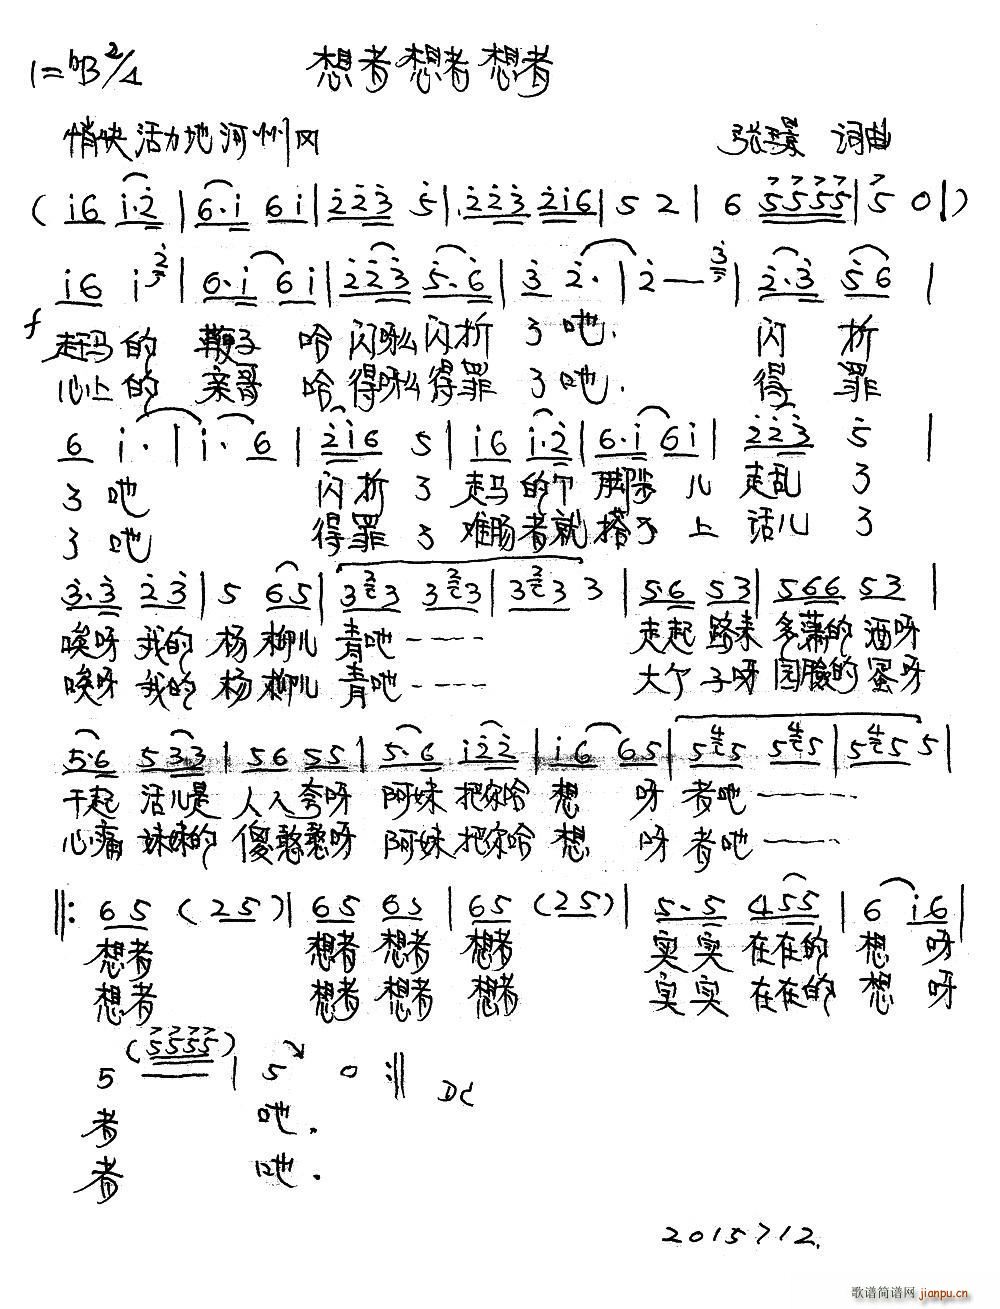 1=♭B 2/4 想者想者想者
悄快活力地 河州风 张璟 词曲
( i6 i·2 | 6·i 6i | 223 5 | 223 2i6 | 5 2 | 6 5555 | 5 0 | )
i6 i | 6·i 6i | 223 5·6 | 3 2· | 2 — | 2·3 56 |
f 走马的 鞭子 哈 闪呀么闪折 了吔. 闪 折
心上的 亲哥 哈 得呀么得罪 了吔. 得 罪
6 i· | i· 6 | 2i6 5 | i6 i·2 | 6·i 6i | 223 5 |
了吔 闪折了 走马的个 脚步 儿 走乱 了
了吔 得罪了 难肠者就 搭不 上 话儿 了
3·3 23 | 5 65 | 3 3 3 3 | 3 3 3 | 56 53 | 566 53 |
唉呀 我的 杨柳儿 青吔---- 走起 路来 多荡的 洒呀
唉呀 我的 杨柳儿 青吔---- 大个 子呀 圆脸的 蛋呀
5·6 533 | 56 55 | 5·6 i22 | i6 65 | 5 5 5 5 | 5 5 5 |
干起 活儿是 人人夸呀 阿妹 把你哈 想 呀 者吔----
心痛 妹妹的 傻憨憨呀 阿妹 把你哈 想 呀 者吔----
‖: 65 (25) | 65 65 | 65 (25) | 5·5 455 | 6 i6 |
想者 想者 想者 想者 实实 在在的 想 呀
想者 想者 想者 想者 实实 在在的 想 呀
5 (5555) | 5 0 :‖ DC
者 吔.
者 吔.
2015 7 12.
歌谱简谱网 jianpu.cn